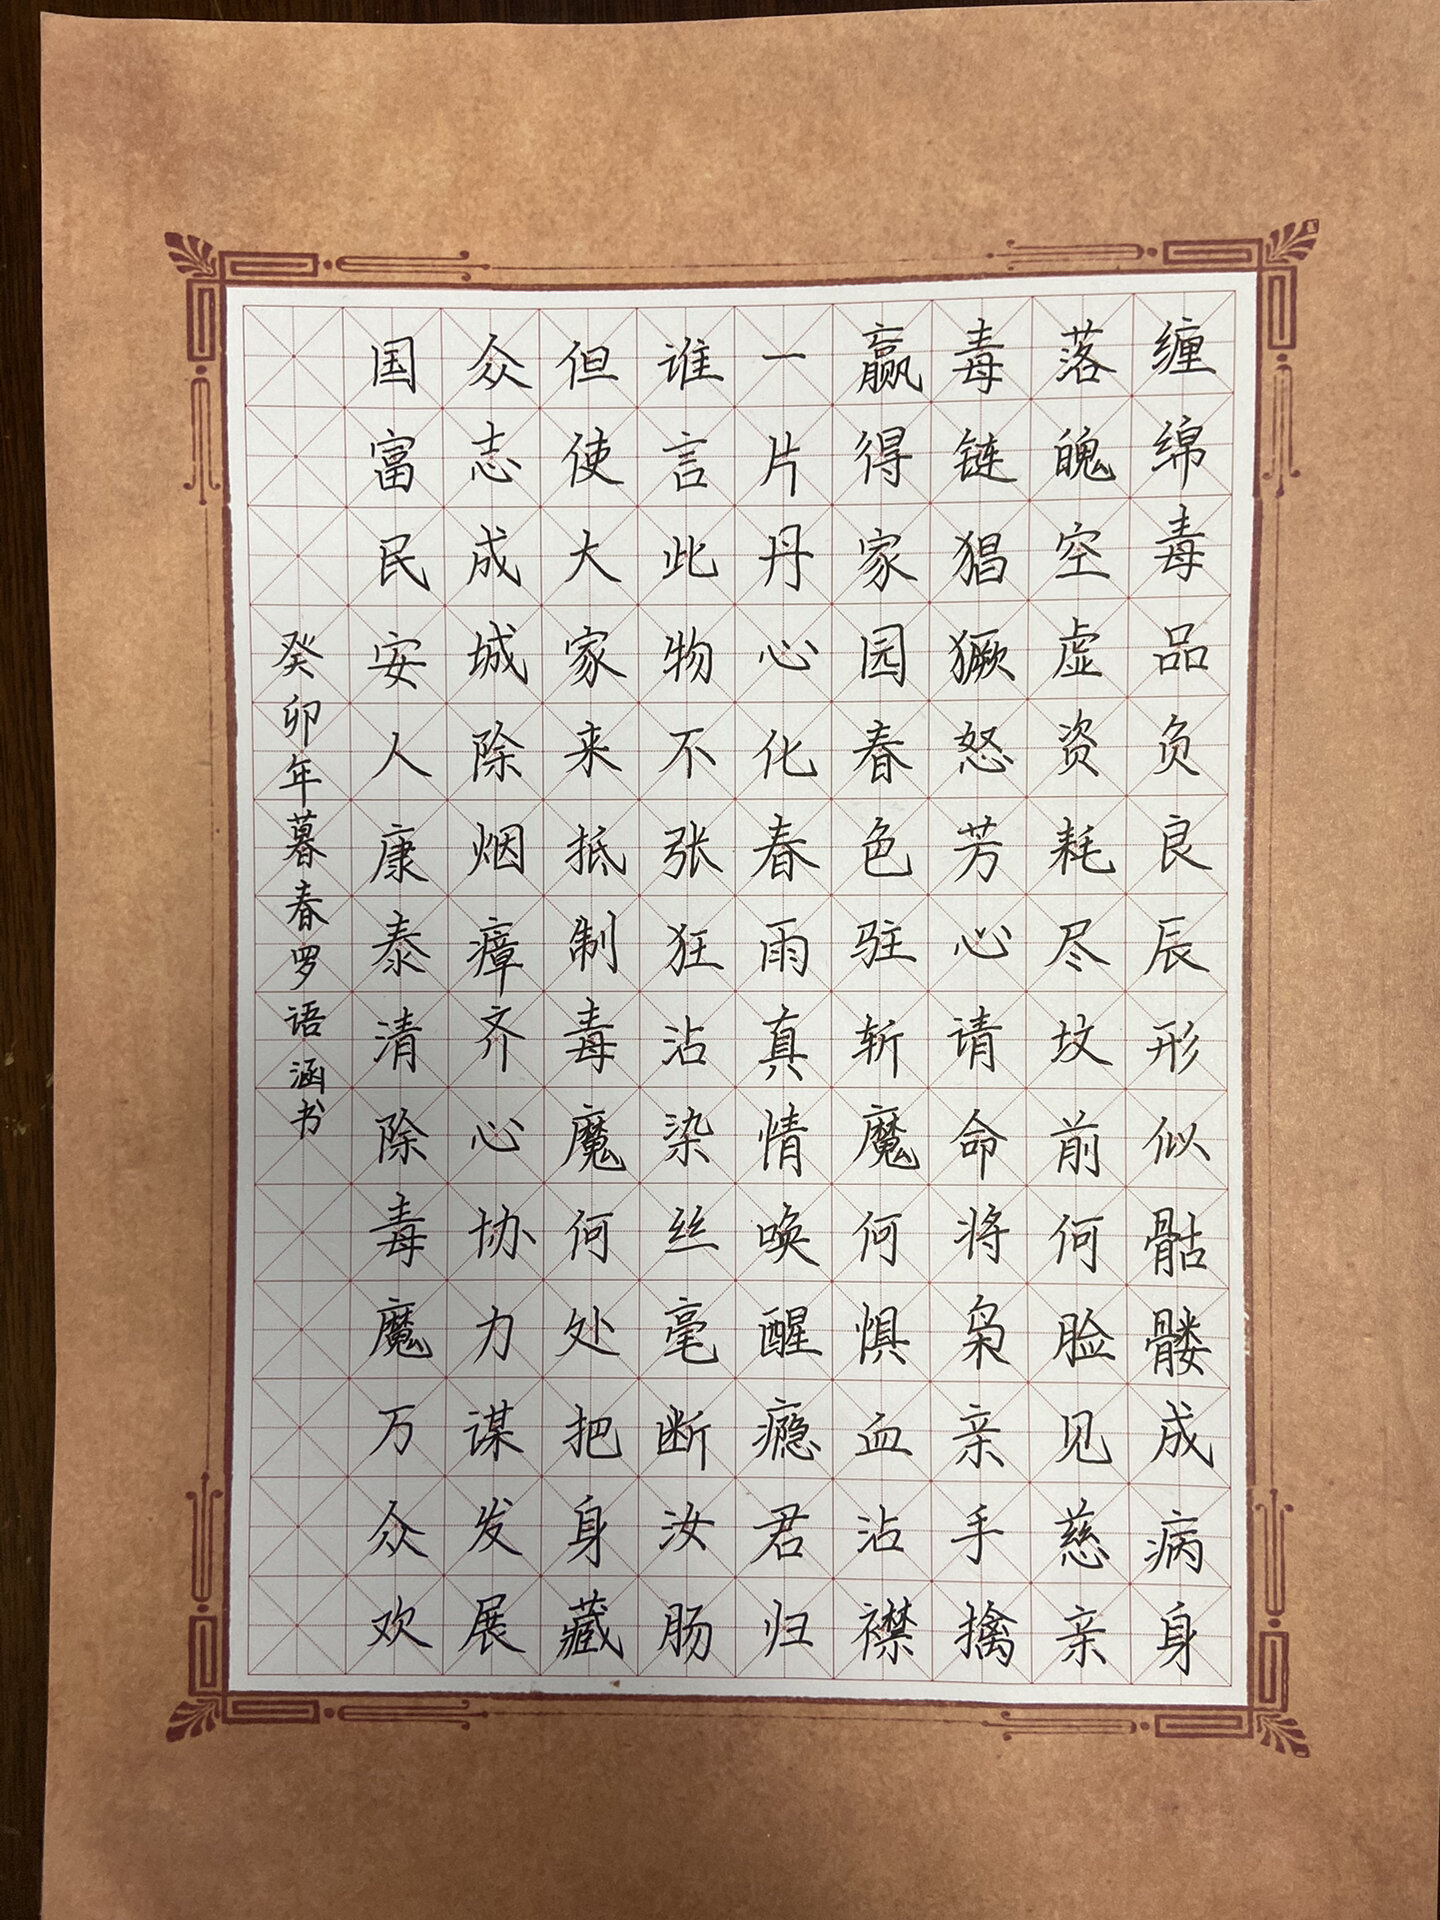 缠绵毒品负良辰形似骷髅成病身
落魄空虚资耗尽坟前何脸见慈亲
毒链猖獗怒芳心请命将枭亲手擒
赢得家园春色驻斩魔何惧血沾襟
一片丹心化春雨真情唤醒瘾君归
谁言此物不张狂沾染丝毫断汝肠
但使大家来抵制毒魔何处把身藏
众志成城除烟瘴齐心协力谋发展
国富民安人康泰清除毒魔万众欢
癸卯年暮春罗语涵书